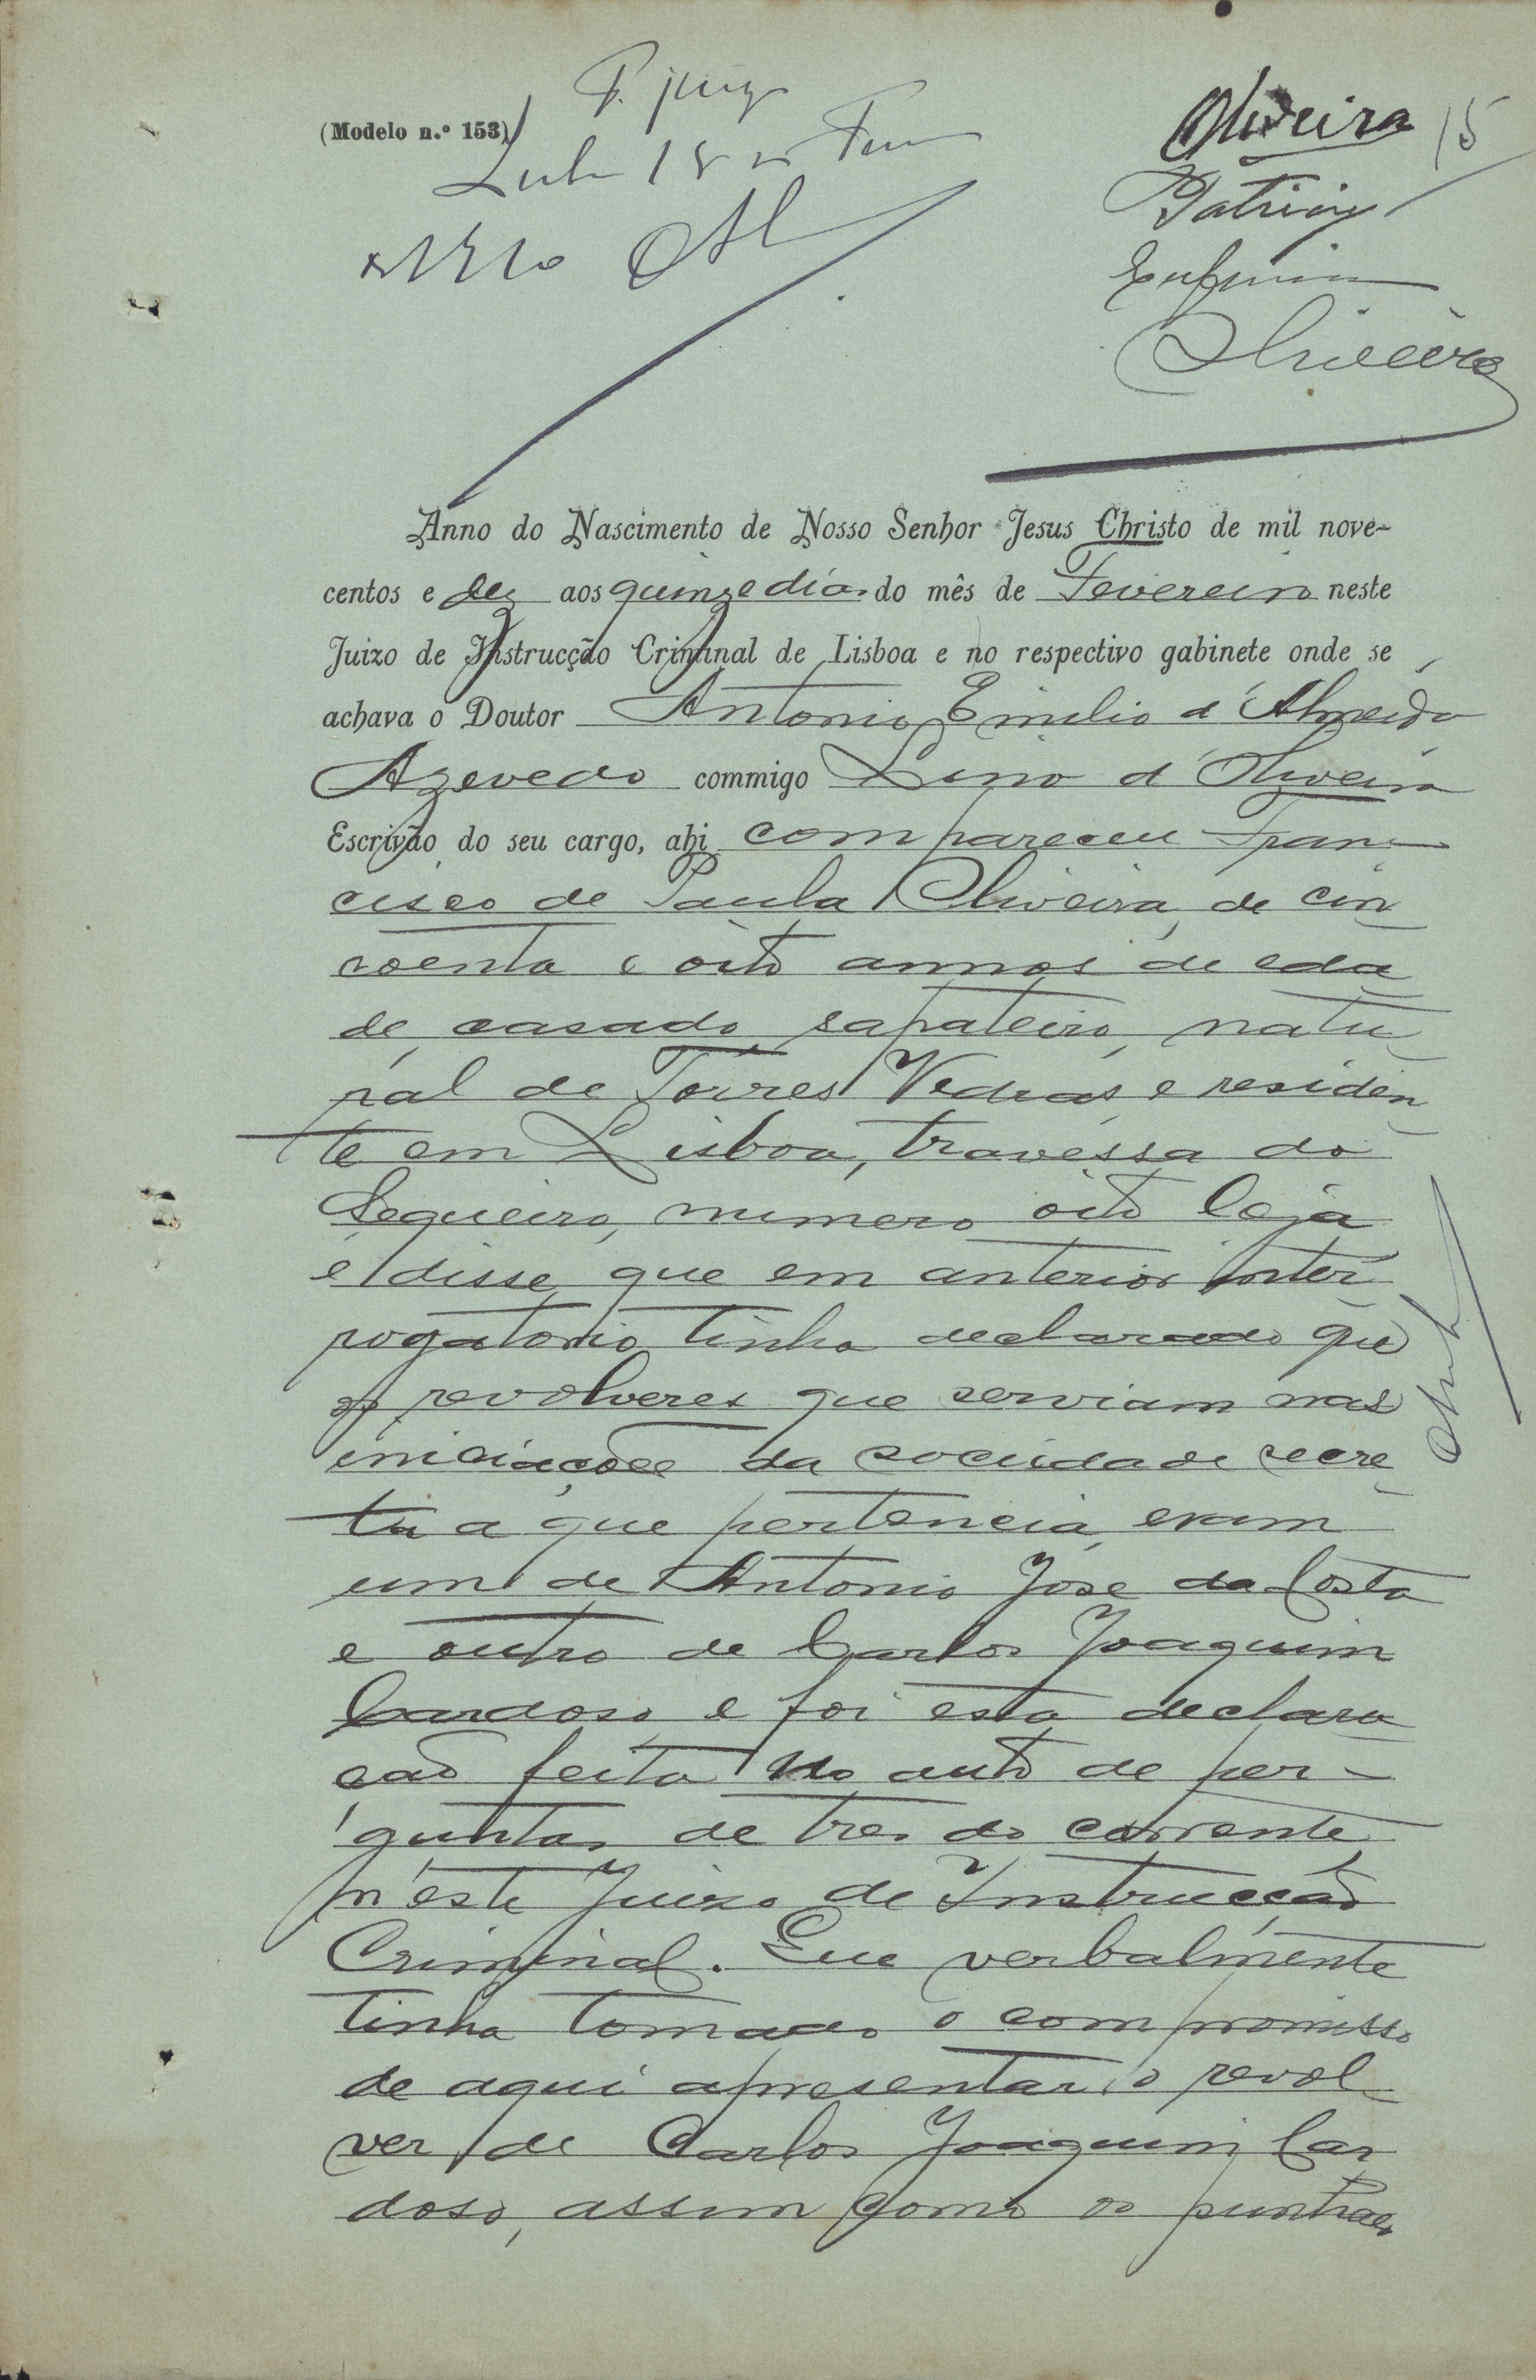 (Modelo n.º 153)
Oliveira
15
Patricio
Oliveira
Anno do Nascimento de Nosso Senhor Jesus Christo de mil nove-
centos e dez aos quinze dias do mês de Fevereiro neste
Juizo de Instrucção Criminal de Lisboa e no respectivo gabinete onde se
achava o Doutor Antonio Emilio d'Almeida
Azevedo commigo Lino d'Oliveira
Escrivão do seu cargo, ahi compareceu Fran-
cisco de Paula Oliveira, de cin
coenta e oito annos de eda
de, casado, sapateiro, natu
ral de Torres Vedras e residen
te em Lisboa, travessa do
Sequeiro, numero oito loja
e disse que em anterior inter
rogatorio tinha declarado que
os revolveres que serviam nas
iniciações da sociedade secre
ta a que pertencia, eram
um de Antonio José da Costa
e outro de Carlos Joaquim
Cardoso e foi esta declara
ção feita no auto de per-
guntas de tres do corrente
n'este Juizo de Instrucção
Criminal. Que verbalmente
tinha tomado o compromisso
de aqui apresentar o revol
ver de Carlos Joaquim Car
doso, assim como os punhaes